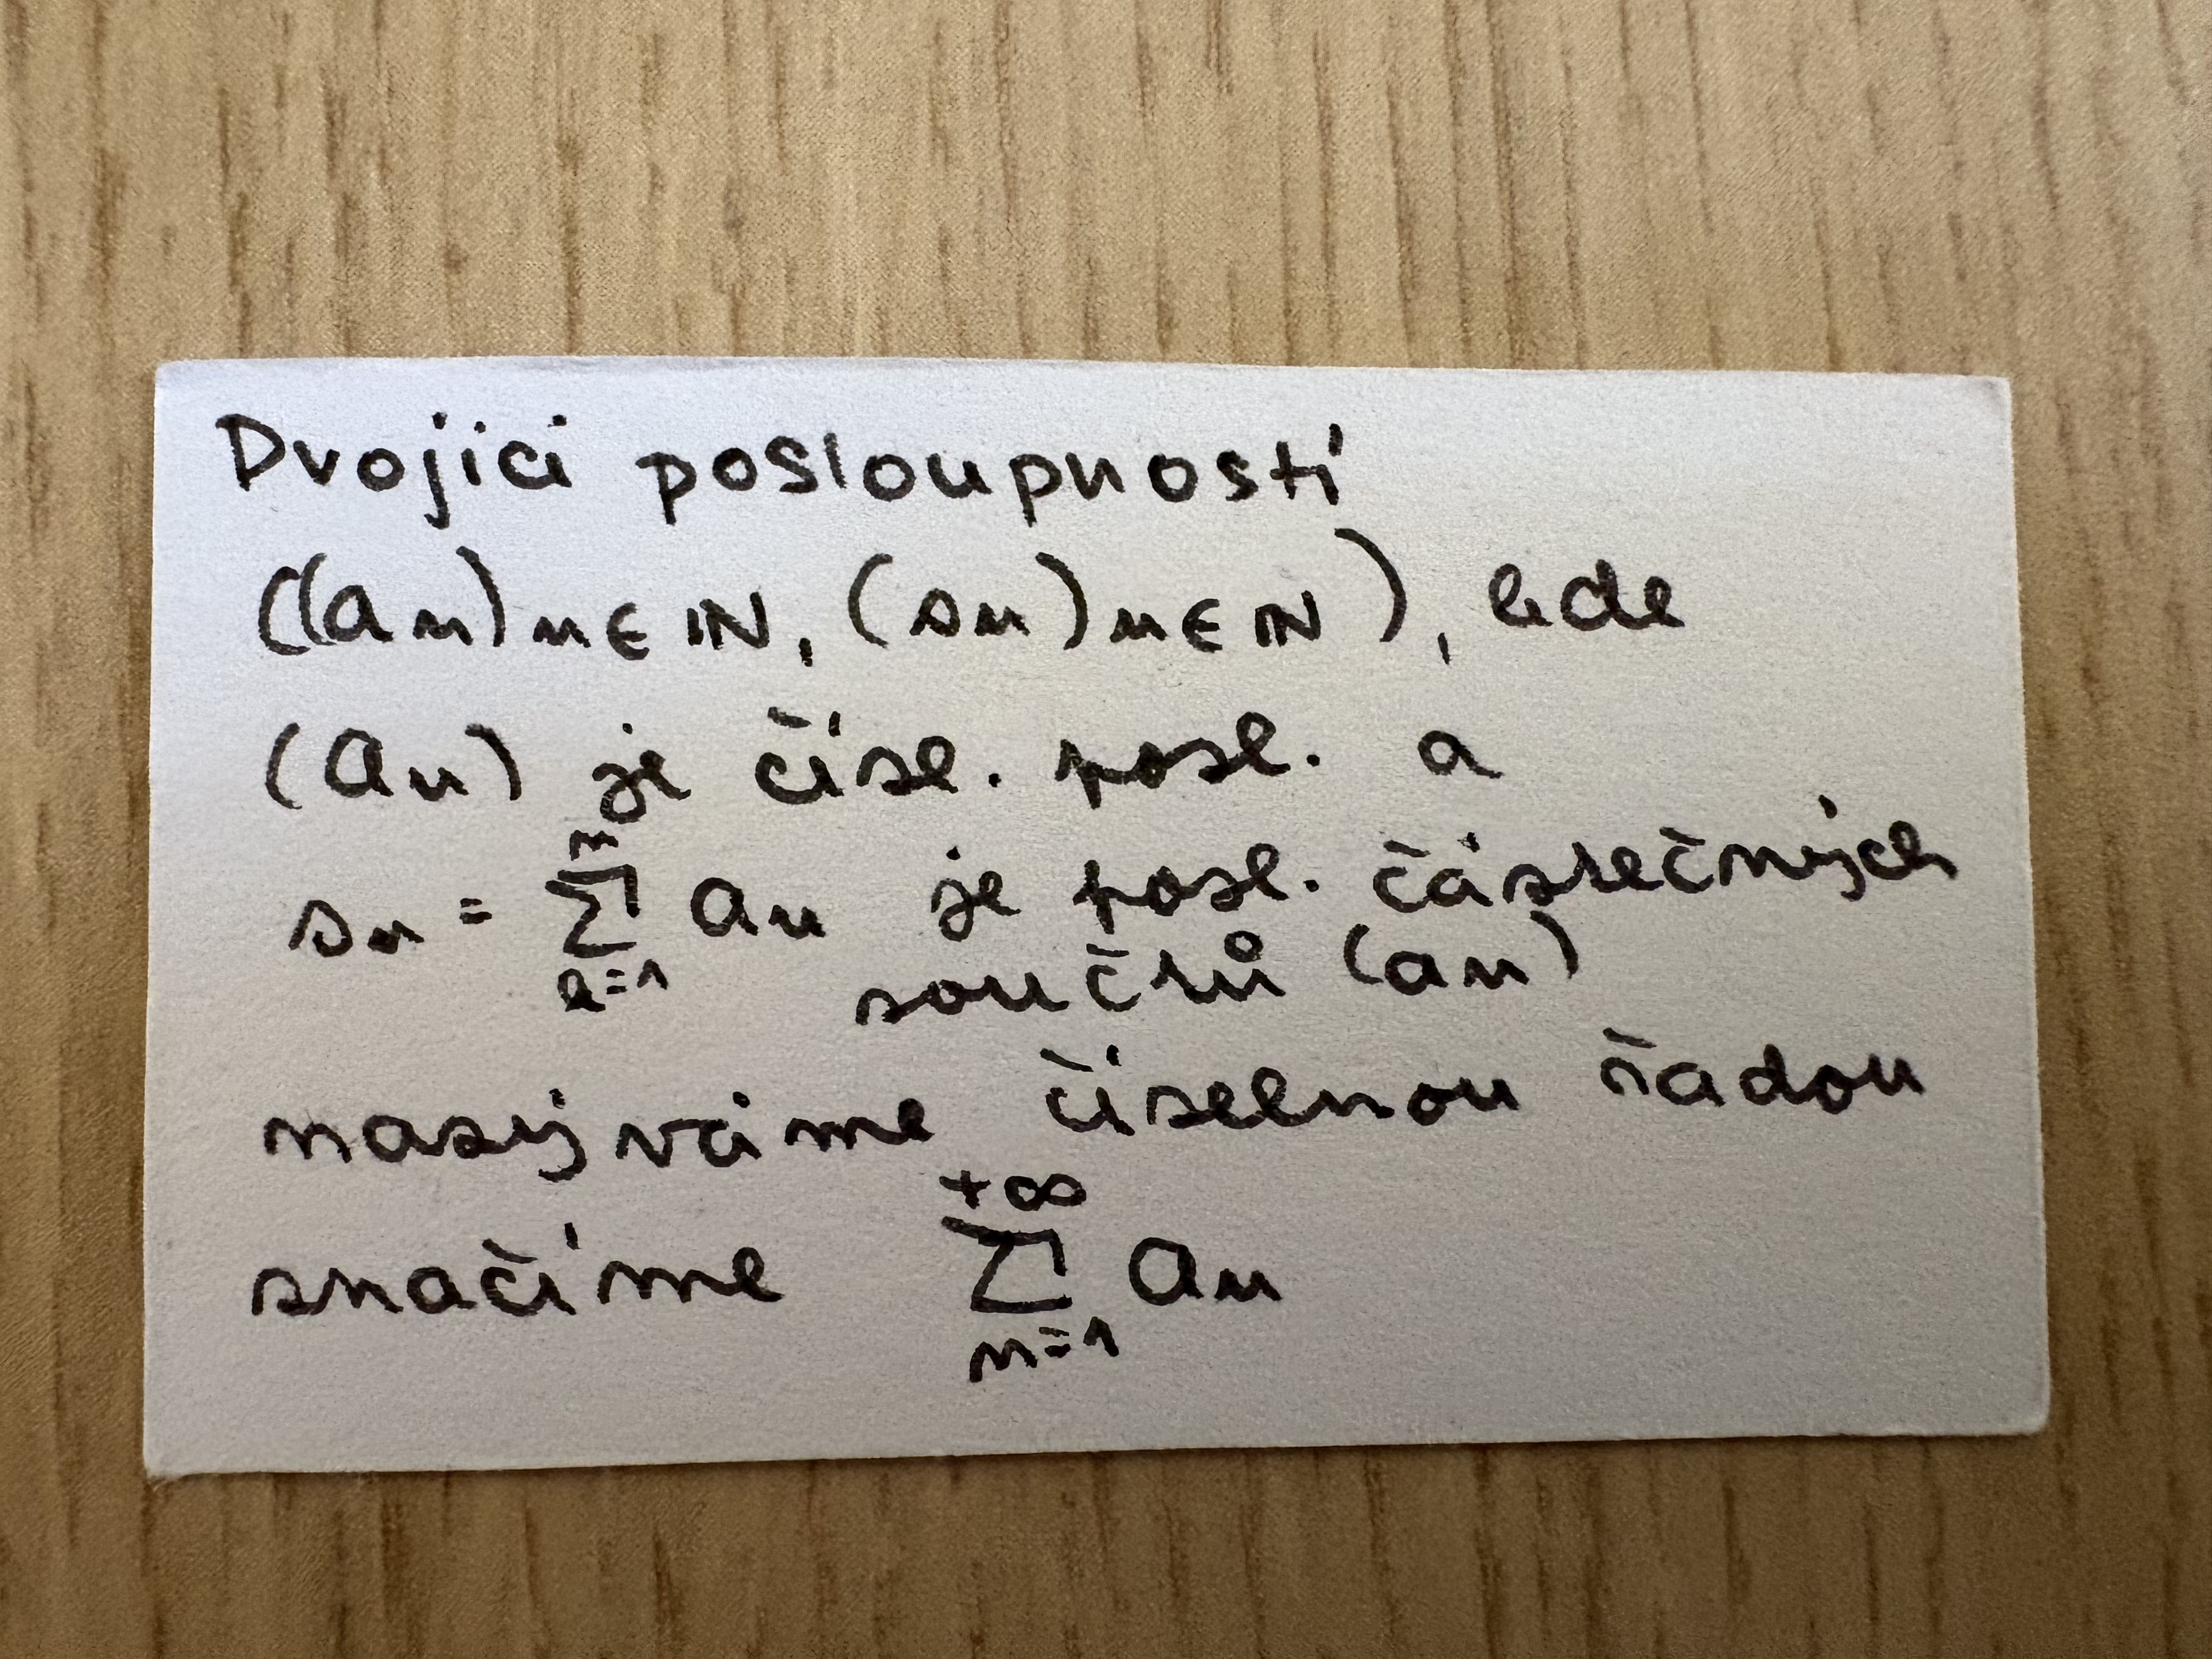 Dvojici posloupností
((aₙ)ₙ∈ℕ, (sₙ)ₙ∈ℕ), kde
(aₙ) je čísl. posl. a
sₙ = ∑ₖ₌₁ⁿ aₙ je posl. částečných
součtů (aₙ)
nazýváme číselnou řadou
značíme ∑ₙ₌₁⁺∞ aₙ